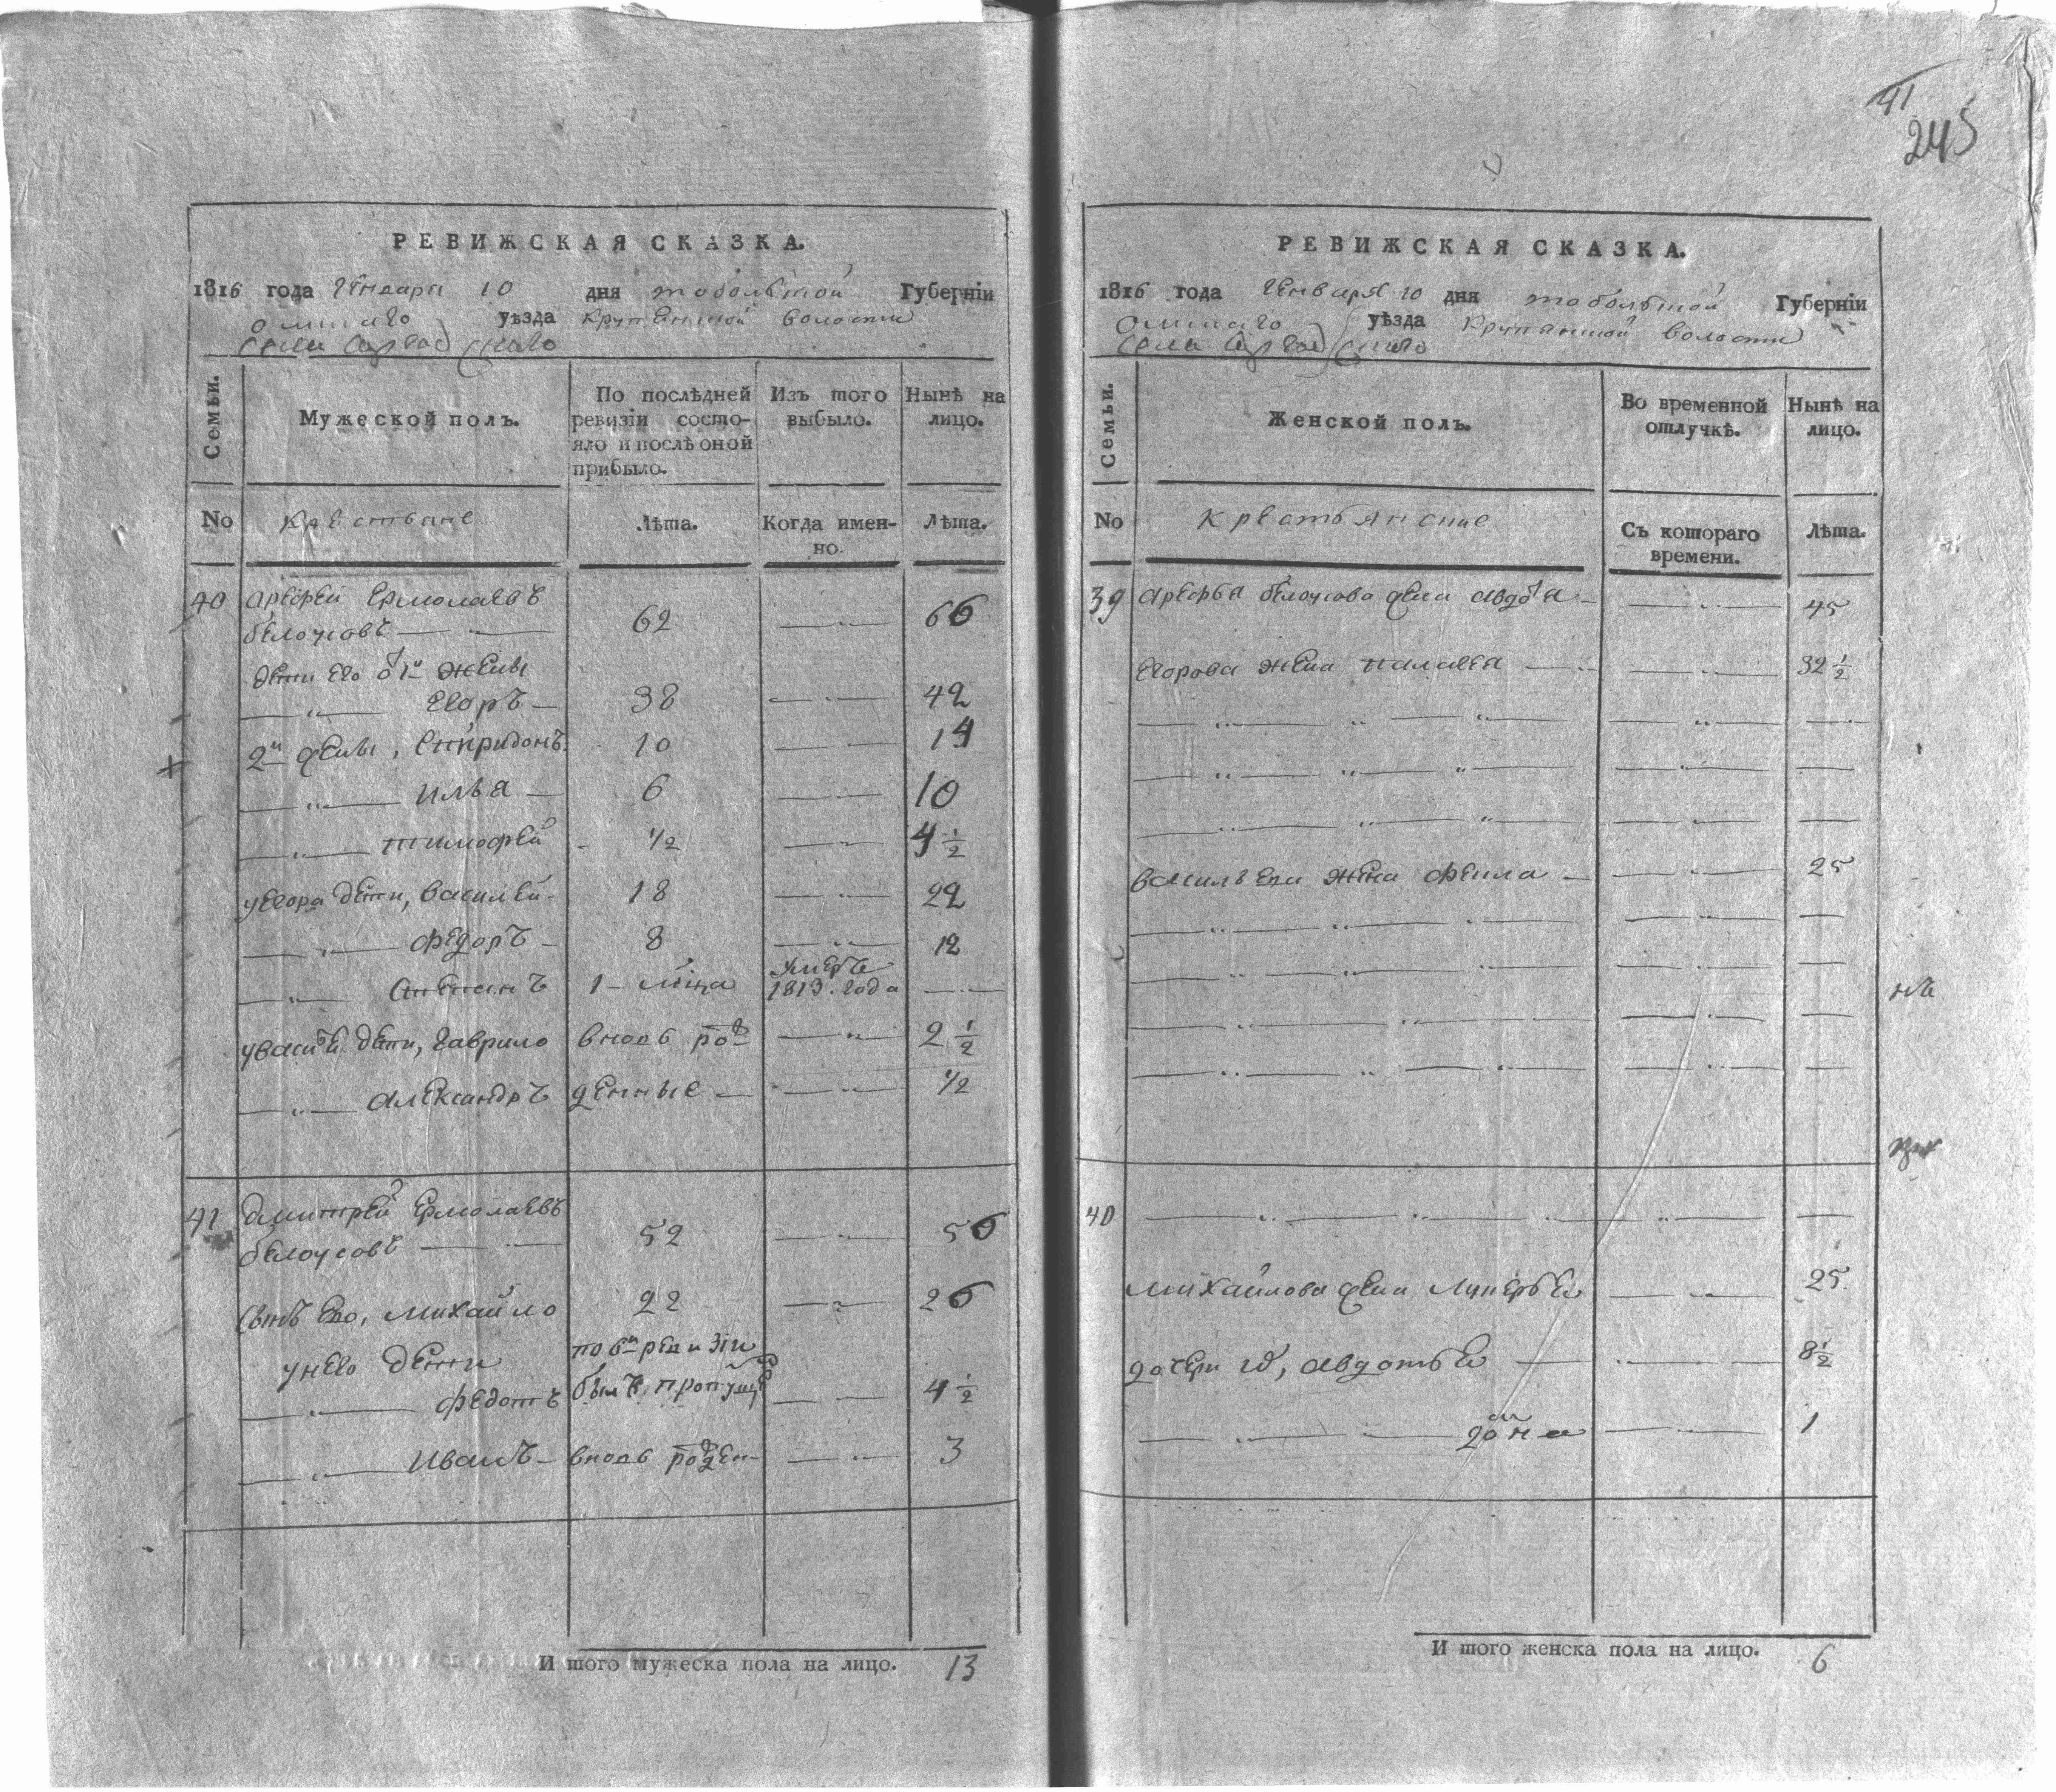 41
245
РЕВИЖСКАЯ СКАЗКА.
1816 года Генваря 10 дня тобольской Губерніи
омскаго уѣзда крутинской волости
села
Семьи.
Мужеской полъ.
По послѣдней ревизіи состояло и послѣ оной прибыло.
Изъ того выбыло.
Нынѣ на лицо.
No
Крестьяне
Лѣта.
Когда именно.
Лѣта.
40 Арефей Ермолаевъ
бѣлоусовъ 62 66
дети его 1й жены
Егоръ 38 42
2й жены, Спиридонъ 10 14
Илья 6 10
тимофей 1/2 4 1/2
уегора дети, Василей 18 22
федоръ 8 12
Степанъ 1 - мца умеръ 1813. года
дети, Гаврило вновь рож 2 1/2
Александръ денные 1/2
41 Дмитрей Ермолаевъ
бѣлоусовъ 52 56
Сынъ Ево, михайло 22 26
унего дети по 6й ревизіи
федотъ былъ пропущ 4 1/2
Иванъ вновь рожден 3
И того мужеска пола на лицо. 13
РЕВИЖСКАЯ СКАЗКА.
1816 года Генваря 10 дня тобольской Губерніи
Омскаго уѣзда Крутинской волости
села
Семьи.
Женской полъ.
Во временной отлучкѣ.
Нынѣ на лицо.
No
Крестьянские
Съ котораго времени.
Лѣта.
39 Арефья бѣлоусова жена авдотья 45
Егорова жена палагея 32 1/2
васильева жена фекла 25
40
михайлова жена Лукерья 25
дочери 1я, авдотья 8 1/2
1
И того женска пола на лицо. 6